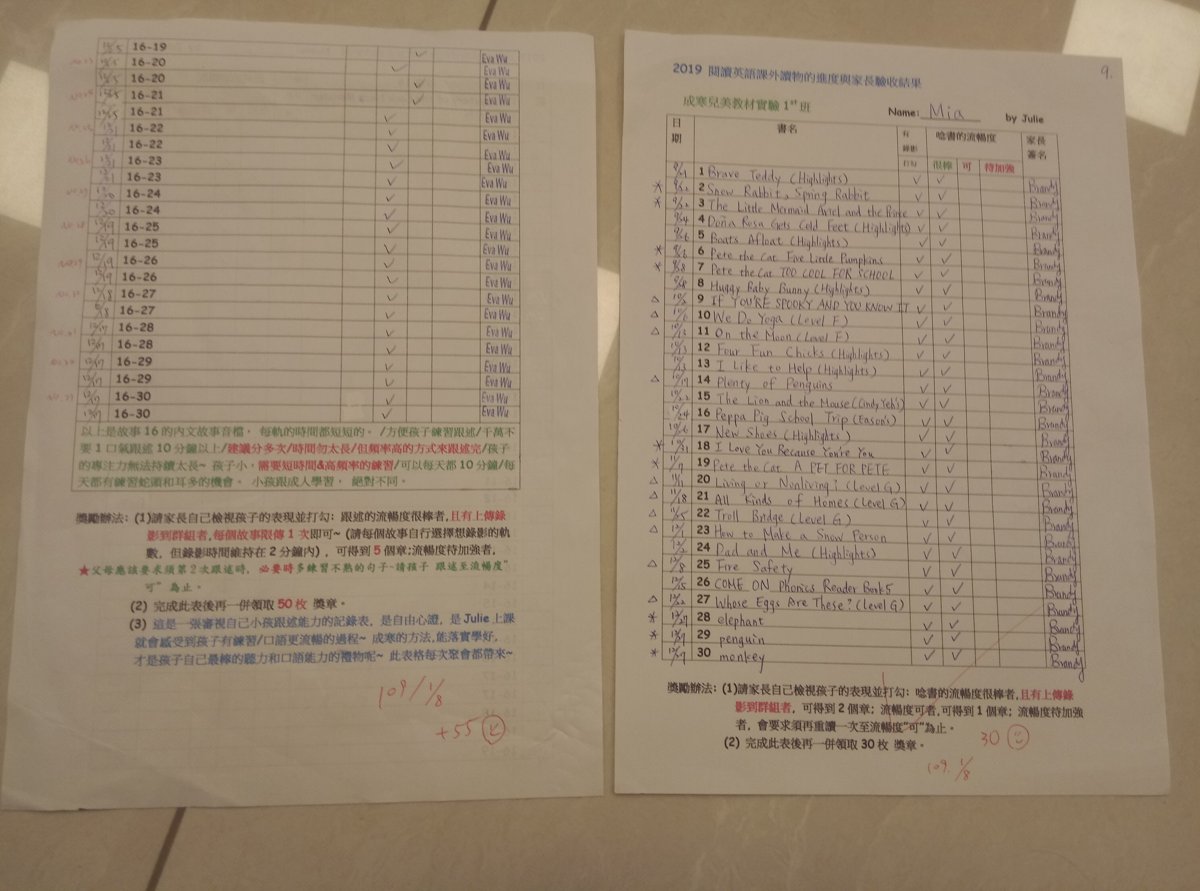 16-19 Eva Wu
16-20 Eva Wu
16-20 Eva Wu
16-21 Eva Wu
16-21 Eva Wu
16-22 Eva Wu
16-22 Eva Wu
16-23 Eva Wu
16-23 Eva Wu
16-24 Eva Wu
16-24 Eva Wu
16-25 Eva Wu
16-25 Eva Wu
16-26 Eva Wu
16-26 Eva Wu
16-27 Eva Wu
16-27 Eva Wu
16-28 Eva Wu
16-28 Eva Wu
16-29 Eva Wu
16-29 Eva Wu
16-30 Eva Wu
16-30 Eva Wu
以上是故事 16 的內文故事音檔， 每軌的時間都短短的。 /方便孩子練習跟述/千萬不
要 1 口氣跟述 10 分鐘以上/建議分多次/時間勿太長/但頻率高的方式來跟述完/孩子
的專注力無法持續太長~ 孩子小，需要短時間&高頻率的練習/可以每天都 10 分鐘/每
天都有練習蛇頭和耳多的機會。 小孩跟成人學習， 絕對不同。
獎勵辦法： (1)請家長自己檢視孩子的表現並打勾： 跟述的流暢度很棒者,且有上傳錄
影到群組者,每個故事限傳 1 次即可~ (請每個故事自行選擇想錄影的軌
數，但錄影時間維持在 2 分鐘內) ，可得到 5 個章;流暢度待加強者,
★父母應該要求須第 2 次跟述時，必要時多練習不熟的句子~請孩子 跟述至流暢度"
可" 為止。
(2) 完成此表後再一併領取 50 枚 獎章。
(3) 這是一張審視自己小孩跟述能力的記錄表，是自由心證，是 Julie 上課
就會感受到孩子有練習/口語更流暢的過程~ 成寒的方法,能落實學好，
才是孩子自己最棒的聽力和口語能力的禮物呢~ 此表格每次聚會都帶來~
109/1/8
+55
9.
2019 閱讀英語課外讀物的進度與家長驗收結果
成寒兒美教材實驗 1st 班 Name: Mia by Julie
日期 書名 有錄影 唸書的流暢度 家長簽名
打勾 很棒 可 待加強
1 Brave Teddy (Highlights) Brandy
* 2 Snow Rabbit, Spring Rabbit Brandy
* 3 The Little Mermaid Ariel and the Prince Brandy
4 Doña Rosa Gets Cold Feet (Highlights) Brandy
5 Boats Afloat (Highlights) Brandy
* 6 Pete the Cat Five Little Pumpkins Brandy
* 7 Pete the Cat TOO COOL FOR SCHOOL Brandy
8 Huggy Baby Bunny (Highlights) Brandy
△ 9 IF YOU'RE SPOOKY AND YOU KNOW IT Brandy
△ 10 We Do Yoga (Level F) Brandy
△ 11 On the Moon (Level F) Brandy
12 Four Fun Chicks (Highlights) Brandy
13 I Like to Help (Highlights) Brandy
△ 14 Plenty of Penguins Brandy
15 The Lion and the Mouse (Cindy Yeh's) Brandy
16 Peppa Pig School Trip (Eason's) Brandy
17 New Shoes (Highlights) Brandy
* 18 I Love You Because You're You Brandy
* 19 Pete the Cat A PET FOR PETE Brandy
△ 20 Living or Nonliving? (Level G) Brandy
△ 21 All Kinds of Homes (Level G) Brandy
△ 22 Troll Bridge (Level G) Brandy
△ 23 How to Make a Snow Person Brandy
24 Dad and Me (Highlights) Brandy
△ 25 Fire Safety Brandy
26 COME ON Phonics Reader Book5 Brandy
△ 27 Whose Eggs Are These? (Level G) Brandy
* 28 elephant Brandy
* 29 penguin Brandy
* 30 monkey Brandy
獎勵辦法： (1)請家長自己檢視孩子的表現並打勾： 唸書的流暢度很棒者,且有上傳錄
影到群組者，可得到 2 個章；流暢度可者,可得到 1 個章；流暢度待加強
者，會要求須再重讀一次至流暢度"可"為止。
(2) 完成此表後再一併領取 30 枚 獎章。
30
109. 1/8